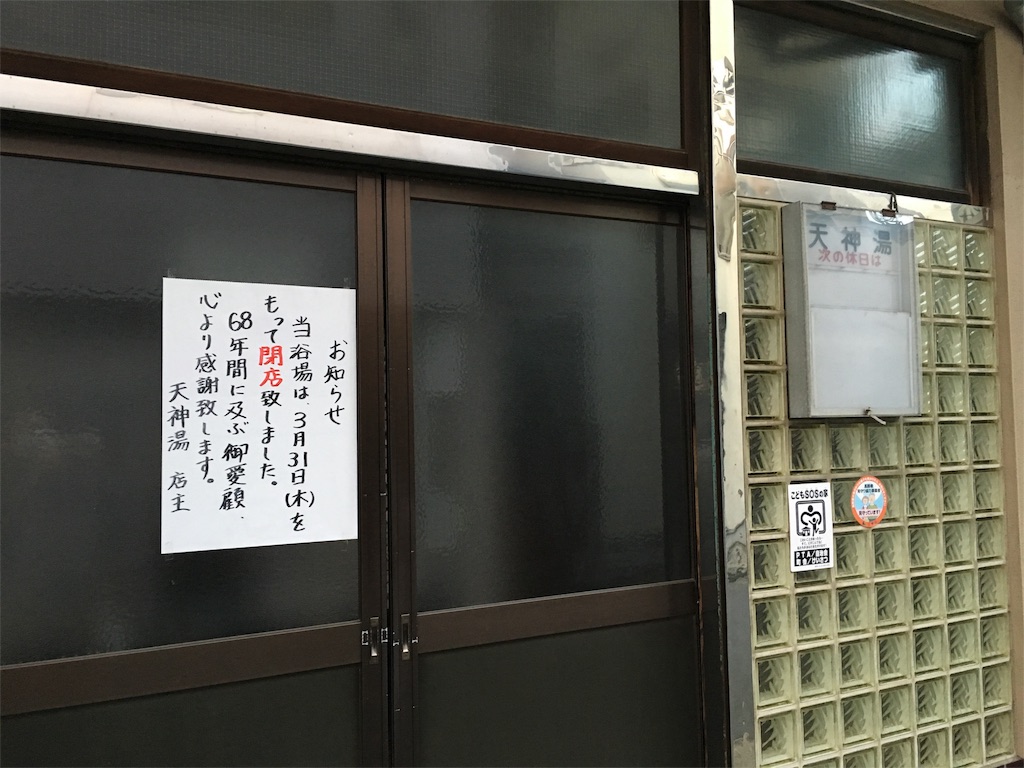 お知らせ
当浴場は、3月31日(木)を
もって閉店致しました。
68年間に及ぶ御愛顧、
心より感謝致します。
天神湯 店主
天神湯
次の休日は
こどもSOSの家